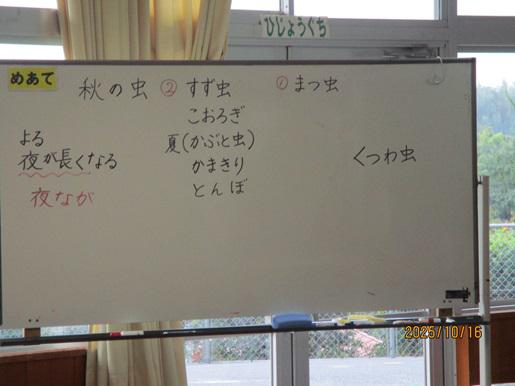 ひじょうぐち
めあて
秋の虫 ② すず虫 ① まつ虫
こおろぎ
よる
夏(かぶと虫)
夜が長くなる
かまきり
くつわ虫
夜なが
とんぼ
2025/10/16